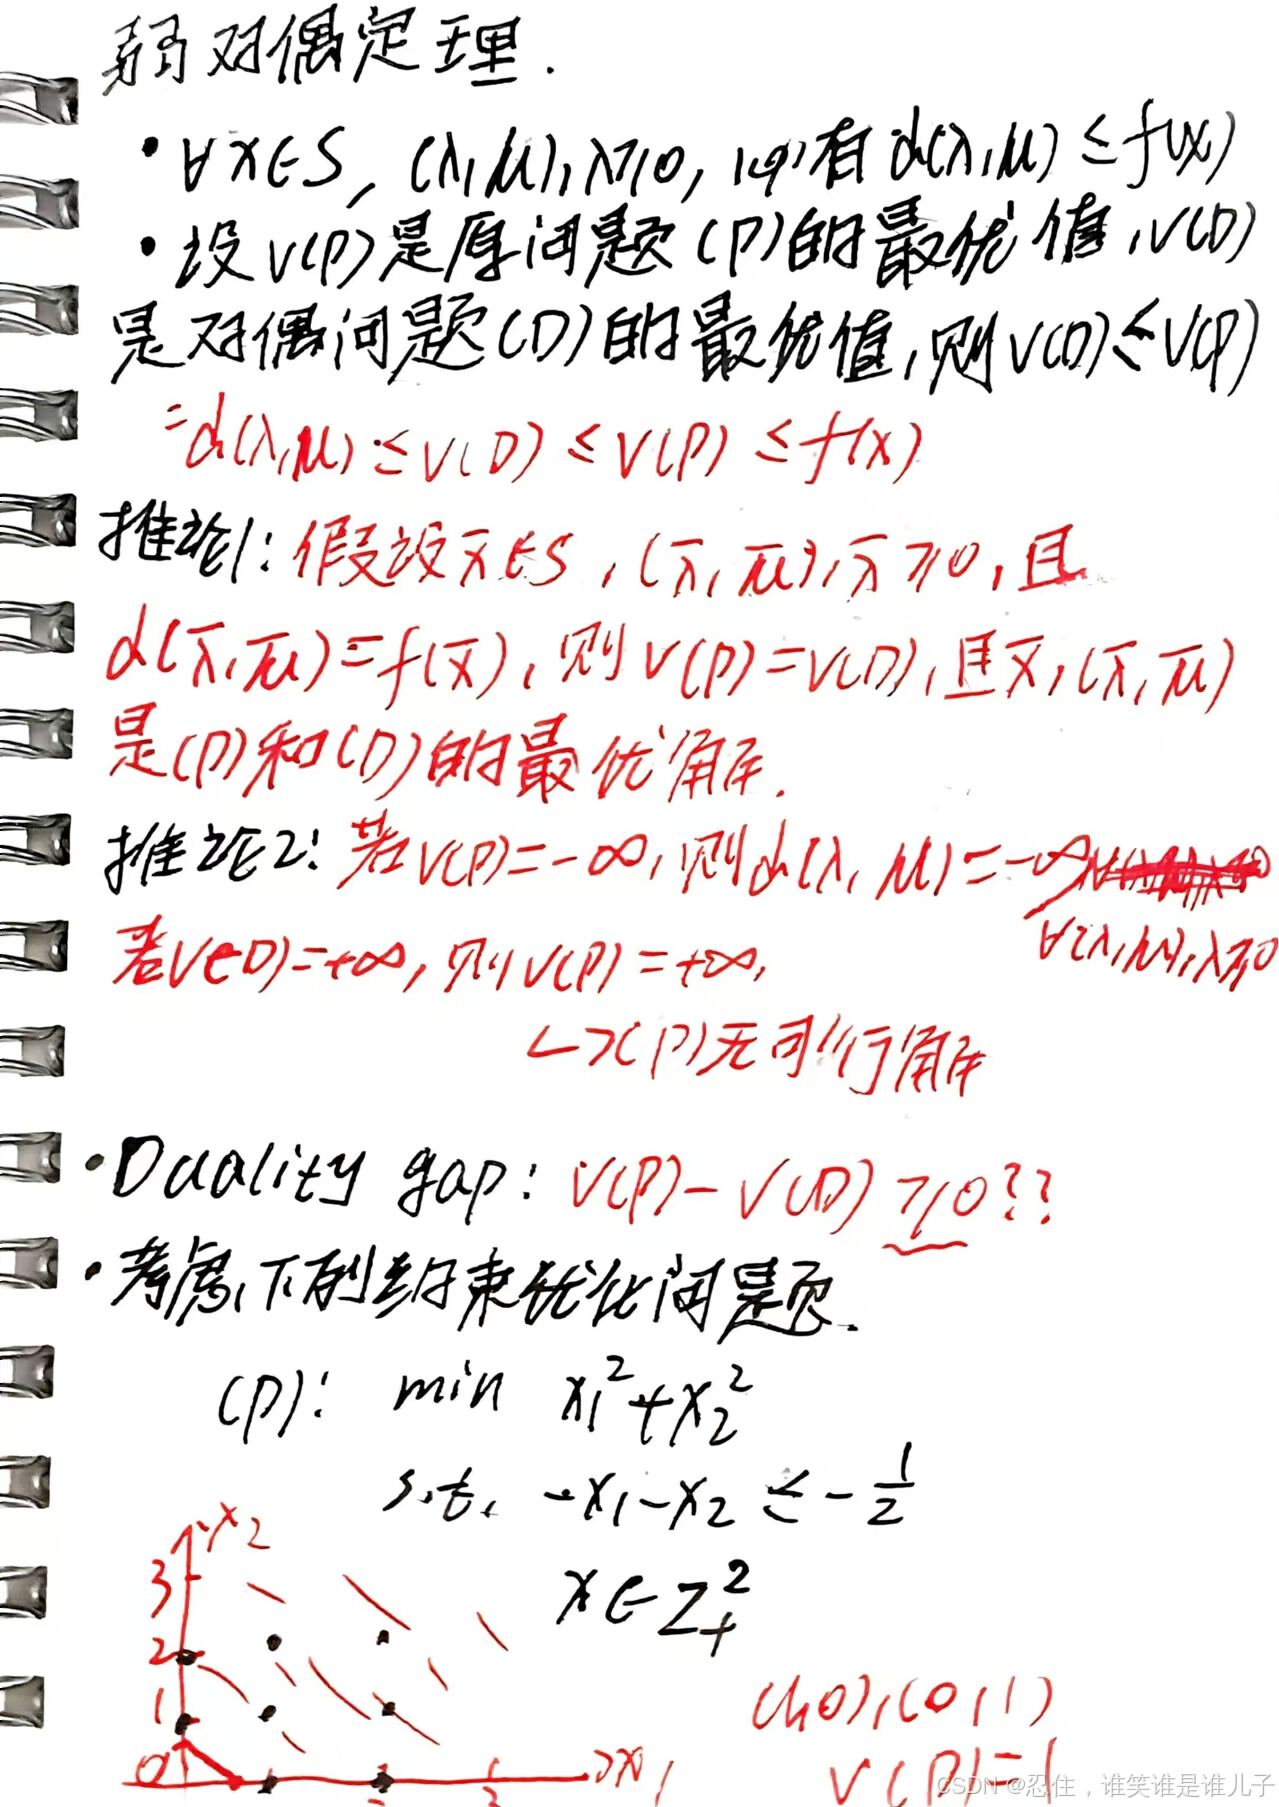 弱对偶定理.
· ∀x∈S, (λ,μ),λ≥0, 则有d(λ,μ)≤f(x)
· 设v(P)是原问题(P)的最优值,v(D)
是对偶问题(D)的最优值,则v(D)≤v(P)
=d(λ,μ)≤v(D)≤v(P)≤f(x)
推论1:假设x̄∈S,(λ̄,μ̄),λ̄≥0,且
d(λ̄,μ̄)=f(x̄),则v(P)=v(D),且x̄,(λ̄,μ̄)
是(P)和(D)的最优解.
推论2:若v(P)=-∞,则d(λ,μ)=-∞
∀(λ,μ),λ≥0
若v(D)=+∞,则v(P)=+∞,
↳(P)无可行解
·Duality gap: v(P)-v(D)≥0??
·考虑下列约束优化问题.
(P): min x₁²+x₂²
s.t. -x₁-x₂≤-1/2
x∈Z₊²
x₂
3
2
1
0
x₁
(1,0),(0,1)
v(P)=1
CSDN @忍住,谁笑谁是谁儿子